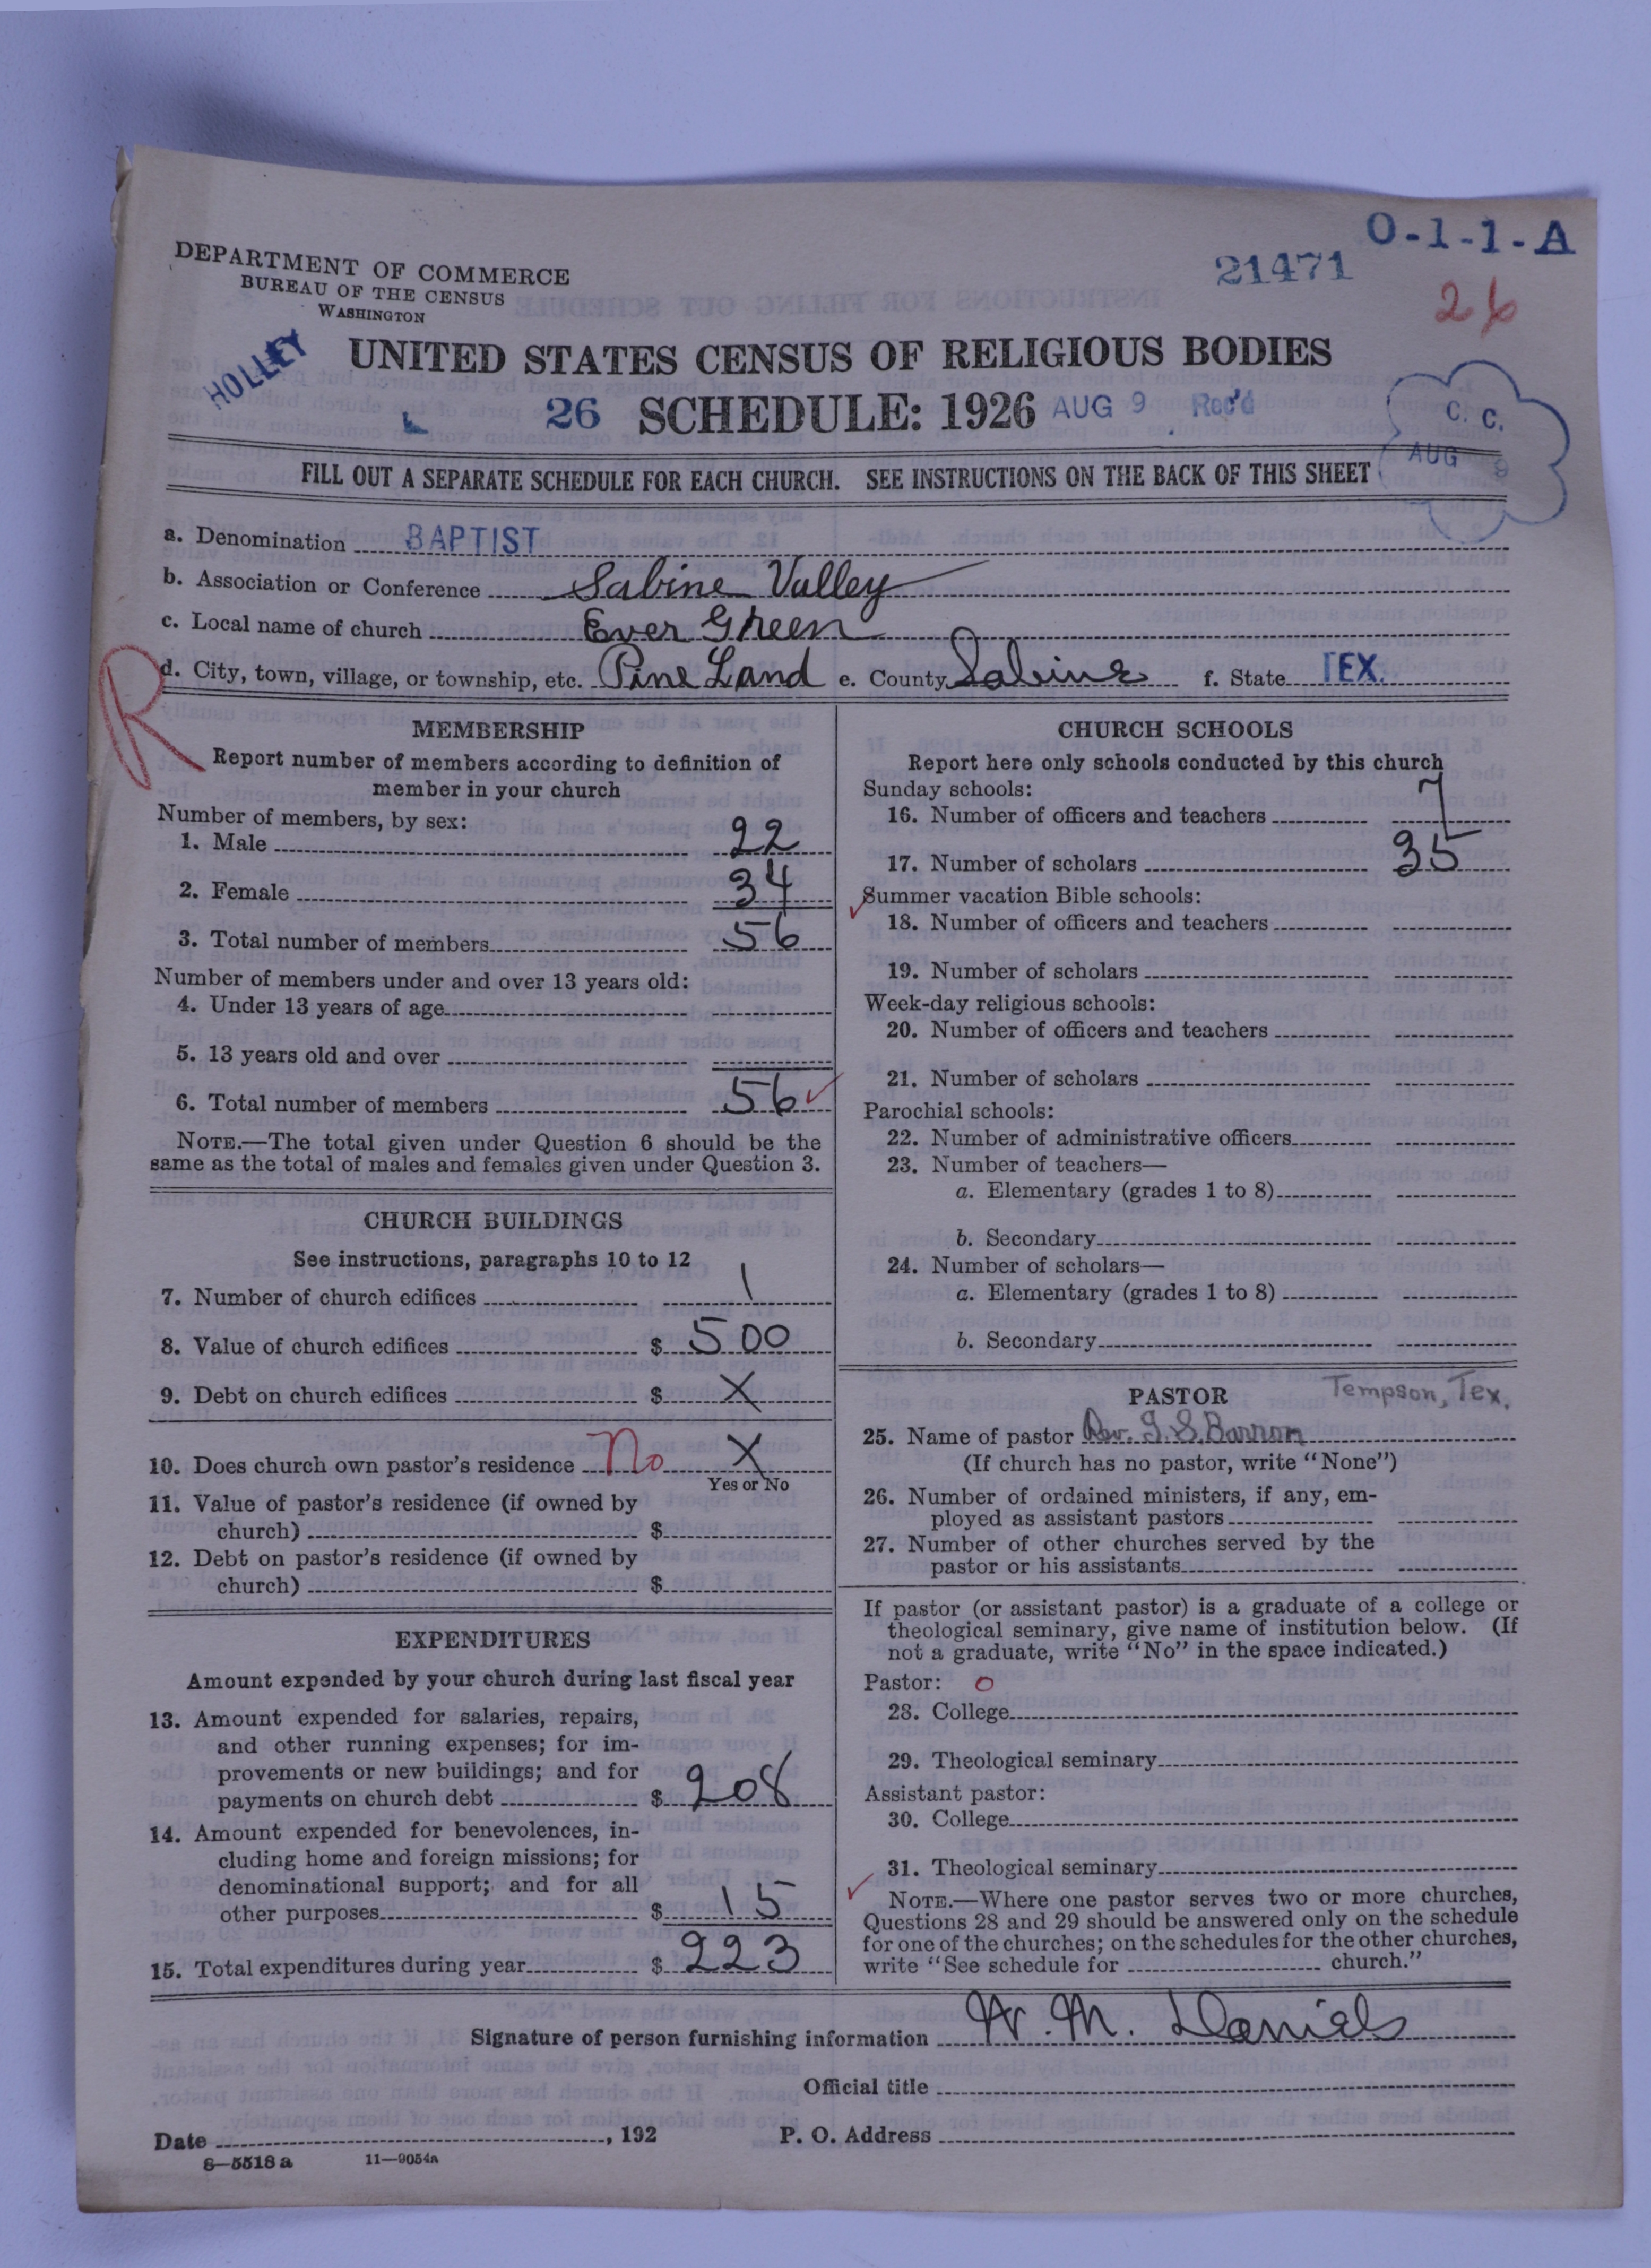 O-1-1-A
21471
26
DEPARTMENT OF COMMERCE
BUREAU OF THE CENSUS
WASHINGTON
HOLLEY
UNITED STATES CENSUS OF RELIGIOUS BODIES
26 SCHEDULE: 1926 AUG 9 Rec'd
C. C.
AUG 9
FILL OUT A SEPARATE SCHEDULE FOR EACH CHURCH. SEE INSTRUCTIONS ON THE BACK OF THIS SHEET
a. Denomination BAPTIST
b. Association or Conference Sabine Valley
c. Local name of church Ever Green
d. City, town, village, or township, etc. Pine Land e. County Sabine f. State TEX.
R
MEMBERSHIP
Report number of members according to definition of
member in your church
Number of members, by sex:
1. Male 22
2. Female 34
3. Total number of members 56
Number of members under and over 13 years old:
4. Under 13 years of age
5. 13 years old and over
6. Total number of members 56
NOTE.—The total given under Question 6 should be the
same as the total of males and females given under Question 3.
CHURCH BUILDINGS
See instructions, paragraphs 10 to 12
7. Number of church edifices 1
8. Value of church edifices $ 500
9. Debt on church edifices $ X
10. Does church own pastor's residence No X
Yes or No
11. Value of pastor's residence (if owned by
church) $
12. Debt on pastor's residence (if owned by
church) $
EXPENDITURES
Amount expended by your church during last fiscal year
13. Amount expended for salaries, repairs,
and other running expenses; for im-
provements or new buildings; and for
payments on church debt $ 208
14. Amount expended for benevolences, in-
cluding home and foreign missions; for
denominational support; and for all
other purposes $ 15
15. Total expenditures during year $ 223
CHURCH SCHOOLS
Report here only schools conducted by this church
Sunday schools:
16. Number of officers and teachers 7
17. Number of scholars 35
Summer vacation Bible schools:
18. Number of officers and teachers
19. Number of scholars
Week-day religious schools:
20. Number of officers and teachers
21. Number of scholars
Parochial schools:
22. Number of administrative officers
23. Number of teachers—
a. Elementary (grades 1 to 8)
b. Secondary
24. Number of scholars—
a. Elementary (grades 1 to 8)
b. Secondary
PASTOR Tempson, Tex.
25. Name of pastor Rev. G. S. Barron
(If church has no pastor, write "None")
26. Number of ordained ministers, if any, em-
ployed as assistant pastors
27. Number of other churches served by the
pastor or his assistants
If pastor (or assistant pastor) is a graduate of a college or
theological seminary, give name of institution below. (If
not a graduate, write "No" in the space indicated.)
Pastor: O
28. College
29. Theological seminary
Assistant pastor:
30. College
31. Theological seminary
NOTE.—Where one pastor serves two or more churches,
Questions 28 and 29 should be answered only on the schedule
for one of the churches; on the schedules for the other churches,
write "See schedule for church."
Signature of person furnishing information W. M. Daniels
Official title
Date , 192 P. O. Address
8—5518 a 11—9054a